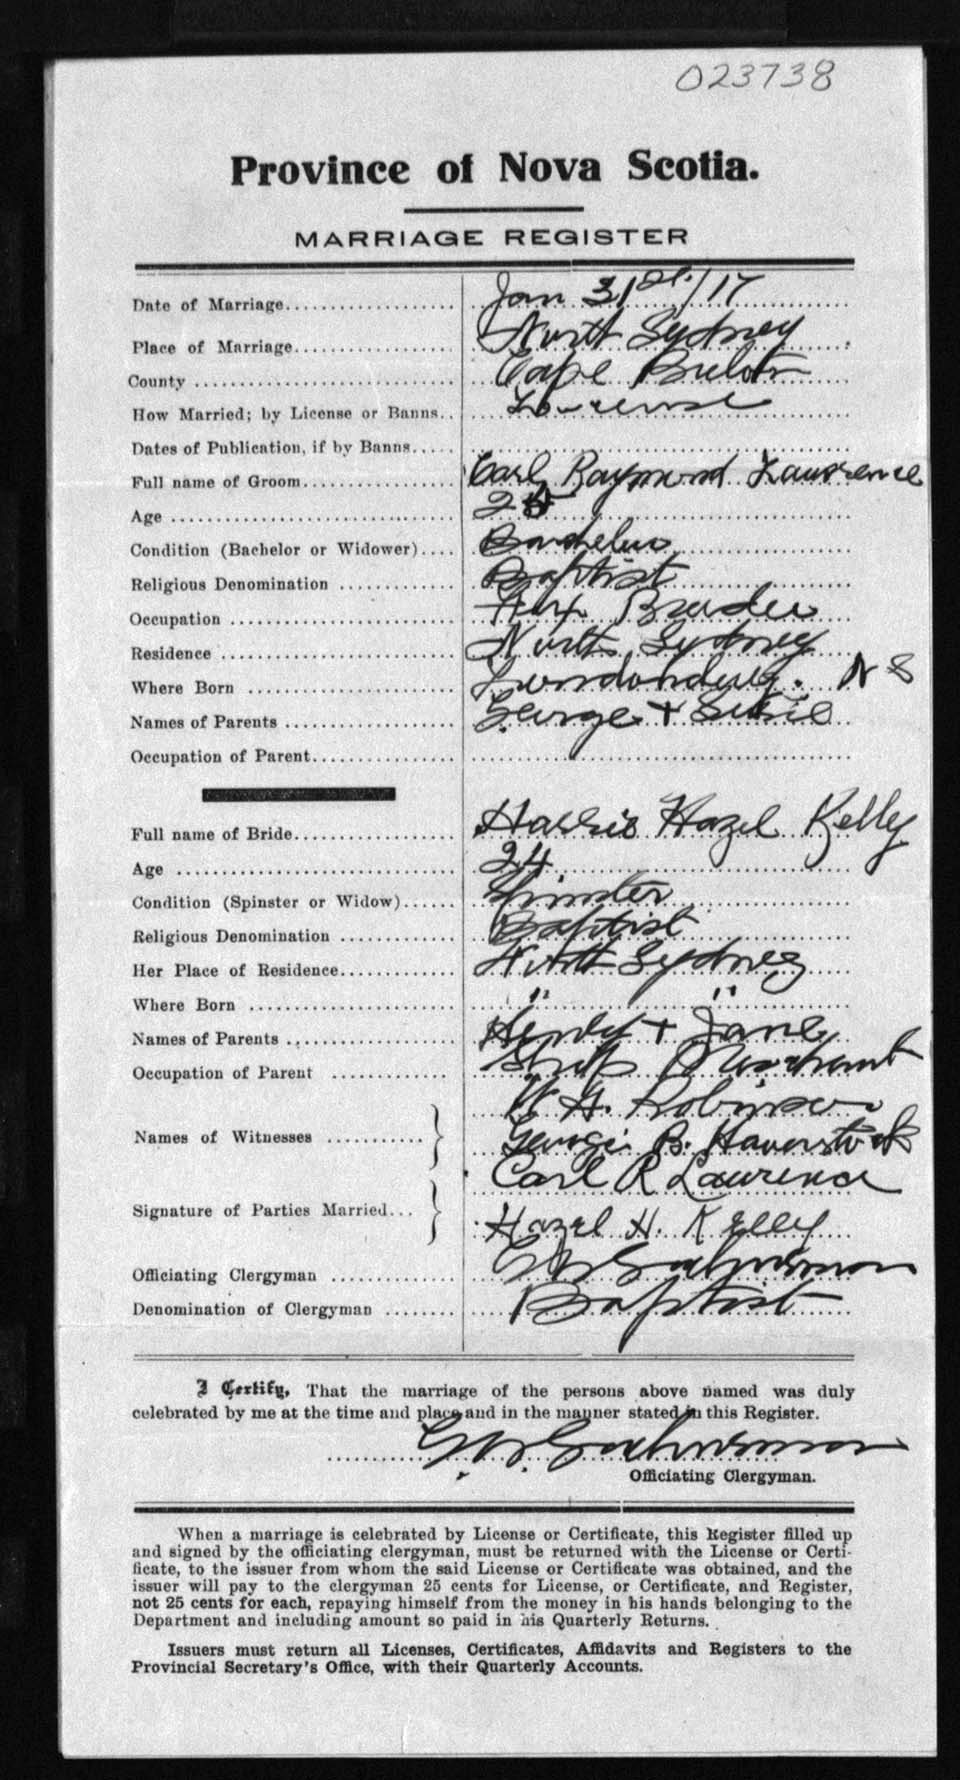 023738
Province of Nova Scotia.
MARRIAGE REGISTER
Date of Marriage Jan 31st/17
Place of Marriage North Sydney
County Cape Breton
How Married; by License or Banns License
Dates of Publication, if by Banns
Full name of Groom Carl Raymond Lawrence
Age
Condition (Bachelor or Widower) Bachelor
Religious Denomination Baptist
Occupation Fox Breeder
Residence North Sydney
Where Born Londonderry. N S
Names of Parents George +
Occupation of Parent
Full name of Bride Hazel Kelly
Age 24
Condition (Spinster or Widow) Spinster
Religious Denomination Baptist
Her Place of Residence North Sydney
Where Born " "
Names of Parents Henry + Jane
Occupation of Parent Merchant
Names of Witnesses H. Robinson
George B. Haverstock
Signature of Parties Married Carl R Lawrence
Hazel H. Kelly
Officiating Clergyman
Denomination of Clergyman Baptist
I Certify, That the marriage of the persons above named was duly
celebrated by me at the time and place and in the manner stated in this Register.
Officiating Clergyman.
When a marriage is celebrated by License or Certificate, this Register filled up
and signed by the officiating clergyman, must be returned with the License or Certi-
ficate, to the issuer from whom the said License or Certificate was obtained, and the
issuer will pay to the clergyman 25 cents for License, or Certificate, and Register,
not 25 cents for each, repaying himself from the money in his hands belonging to the
Department and including amount so paid in his Quarterly Returns.
Issuers must return all Licenses, Certificates, Affidavits and Registers to the
Provincial Secretary's Office, with their Quarterly Accounts.